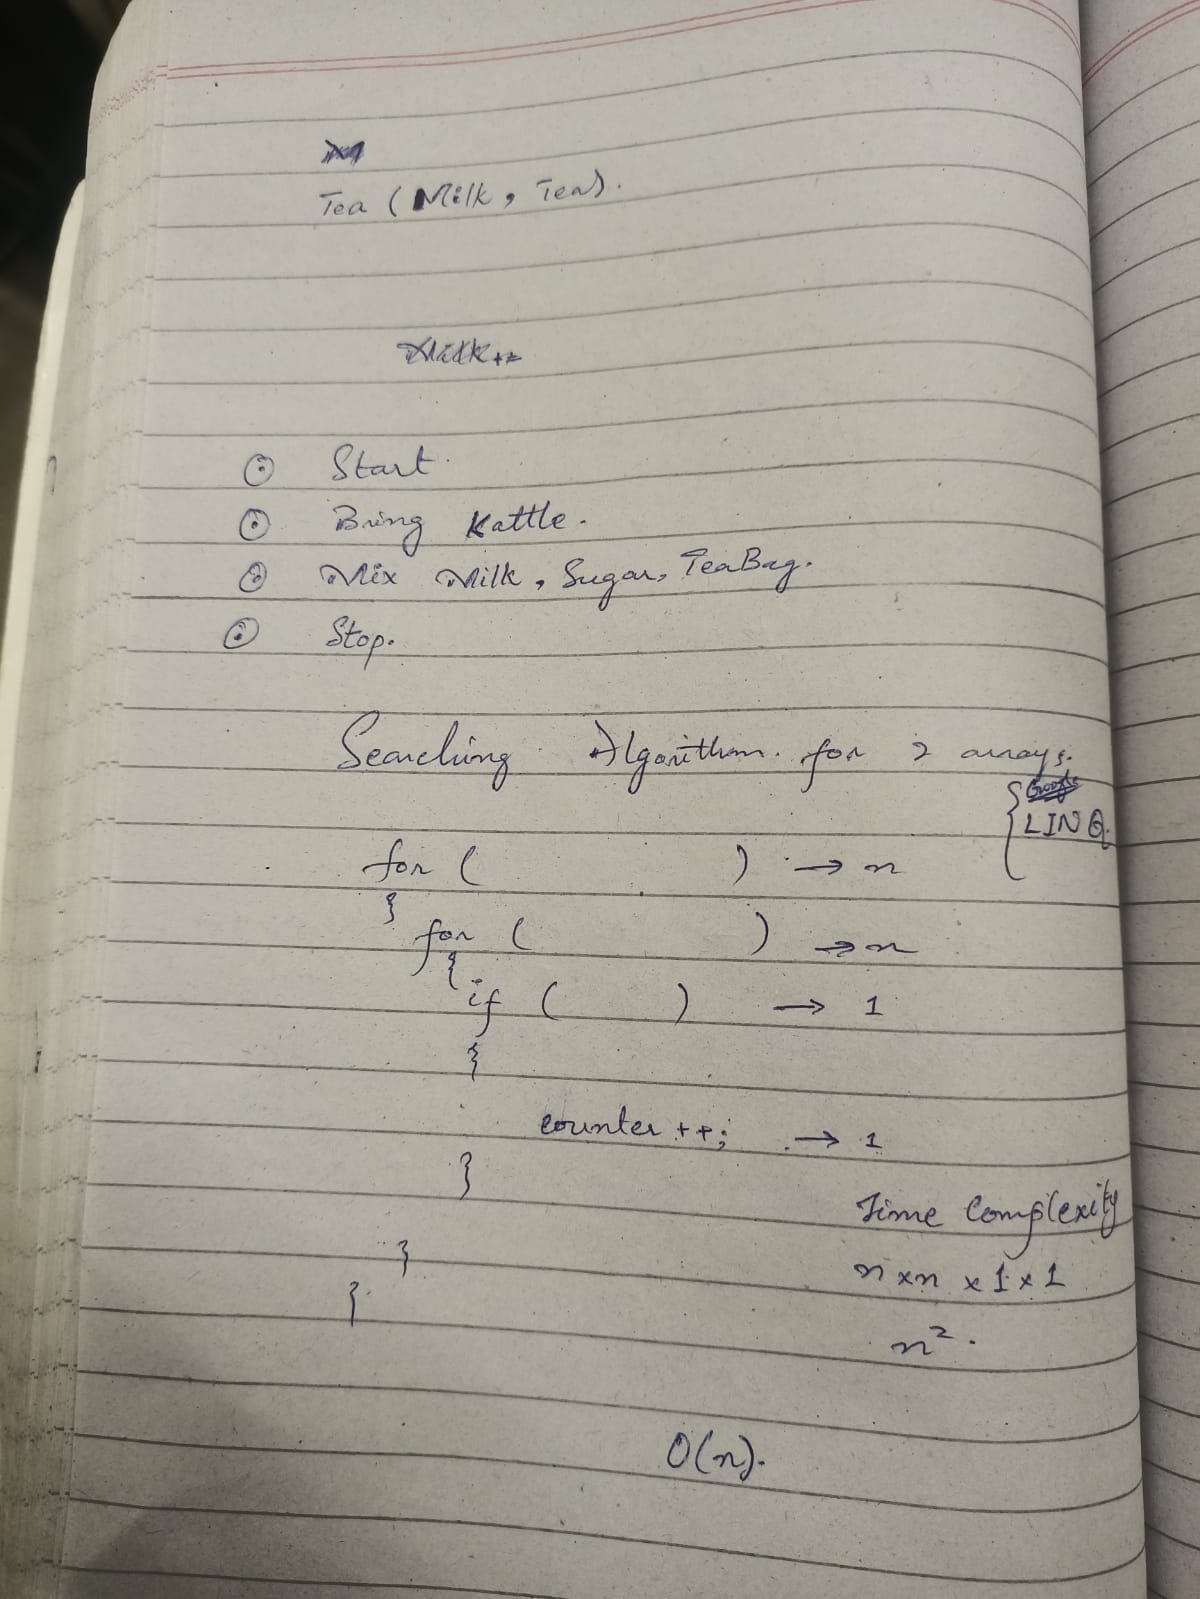 Tea (Milk, Tea).
Milk++
Start.
Bring Kattle.
Mix Milk, Sugar, TeaBag.
Stop.
Searching Algorithm. for 2 arrays.
{ Google
LINQ.
for ( ) → n
{
for ( ) → n
{
if ( ) → 1
{
counter ++; → 1
}
Time Complexity
}
n × n × 1 × 1
}
n².
O(n).